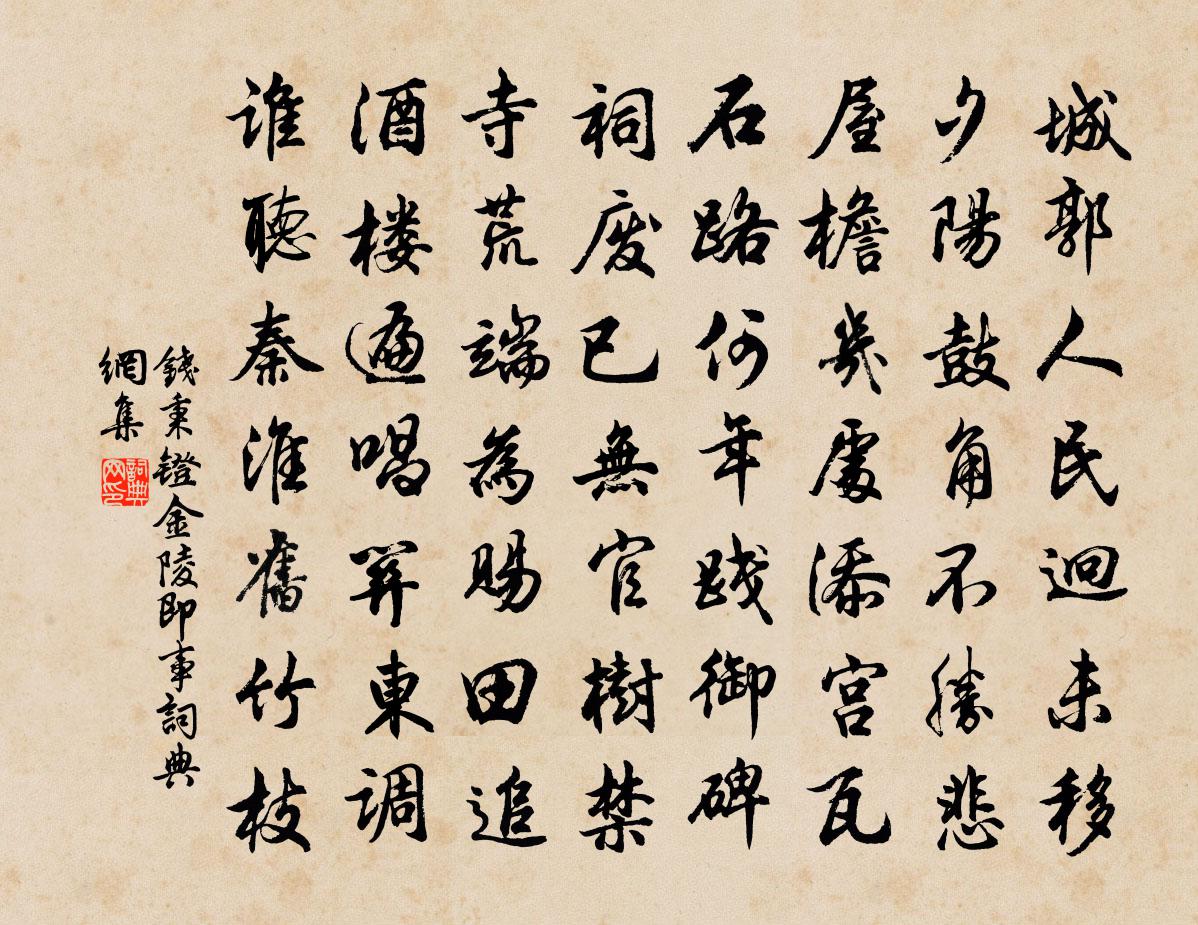 城郭人民迥未移
夕陽鼓角不勝悲
屋檐幾處添宮瓦
石路何年踐御碑
祠廢已無官樹禁
寺荒端為賜田追
酒楼遍唱關東调
谁聽秦淮舊竹枝
錢秉鐙金陵即事詞典
網集
詞典網印